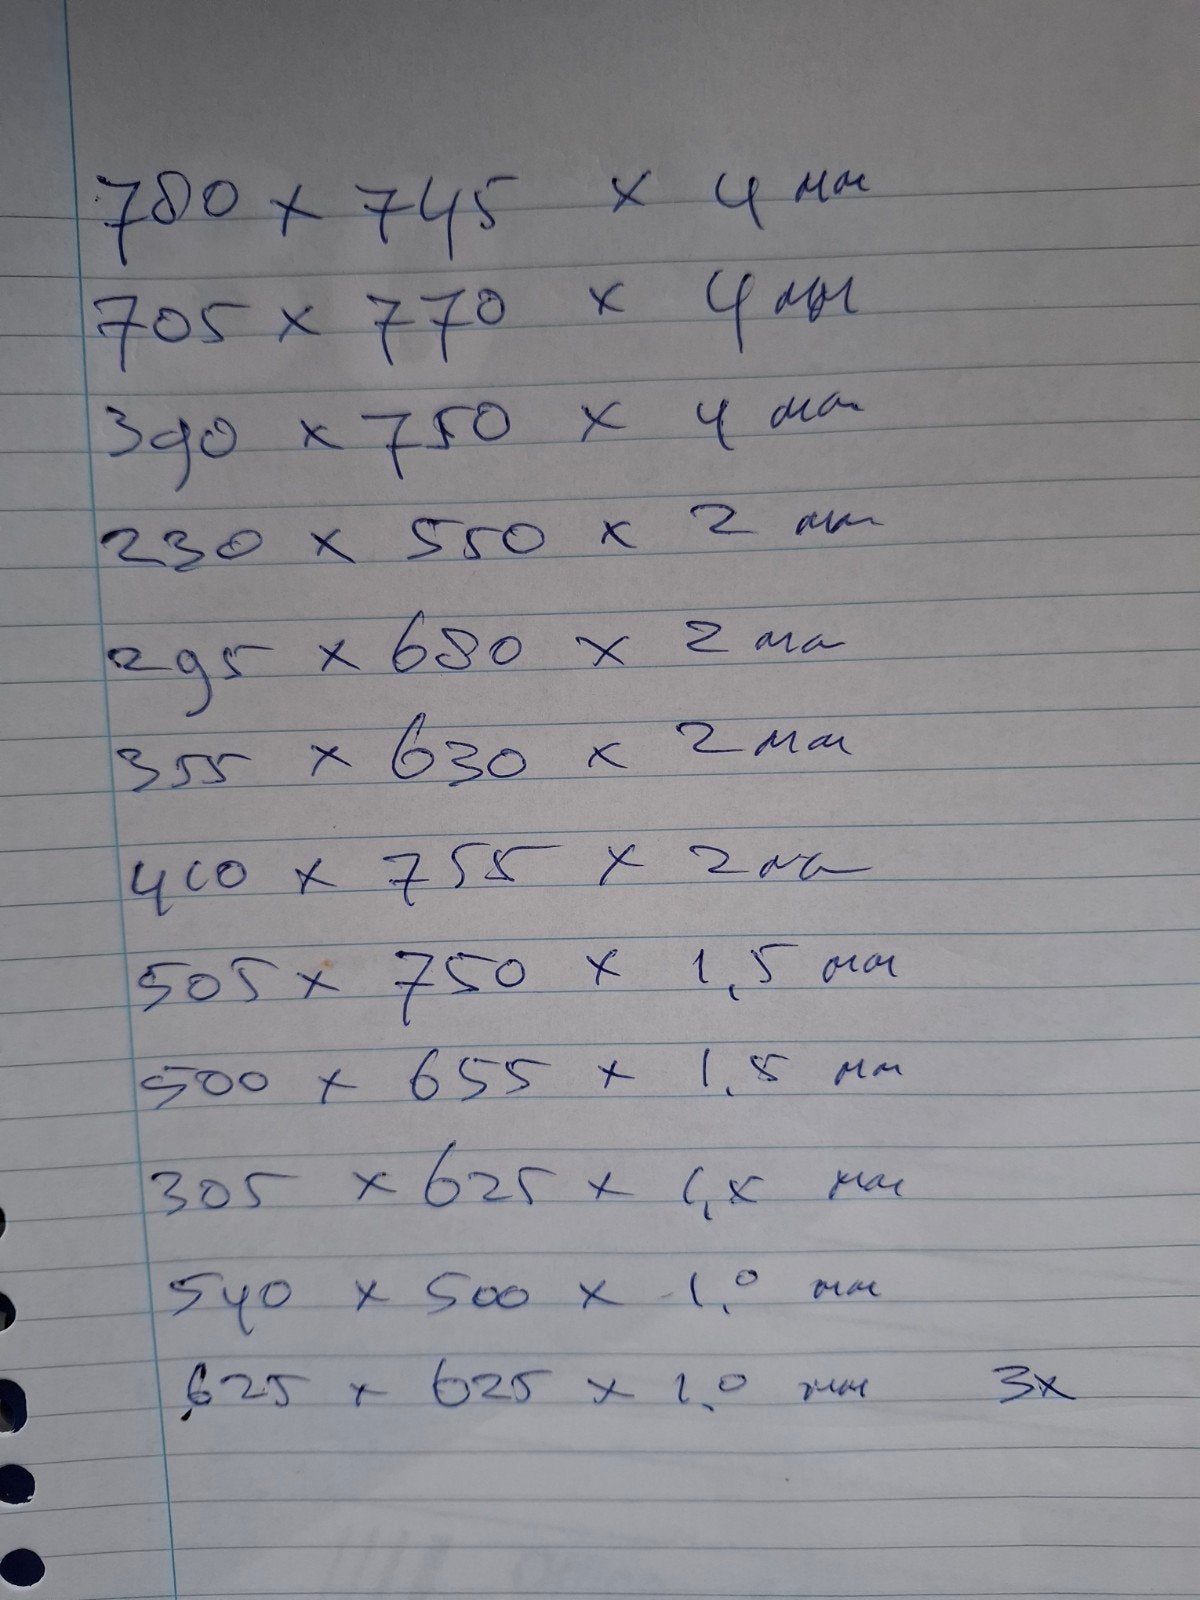 780 x 745 x 4 мм
705 x 770 x 4 мм
390 x 750 x 4 мм
230 x 550 x 2 мм
295 x 680 x 2 мм
355 x 630 x 2 мм
410 x 755 x 2 мм
505 x 750 x 1,5 мм
500 x 655 x 1,5 мм
305 x 625 x 1,5 мм
540 x 500 x 1,0 мм
625 x 625 x 1,0 мм 3x